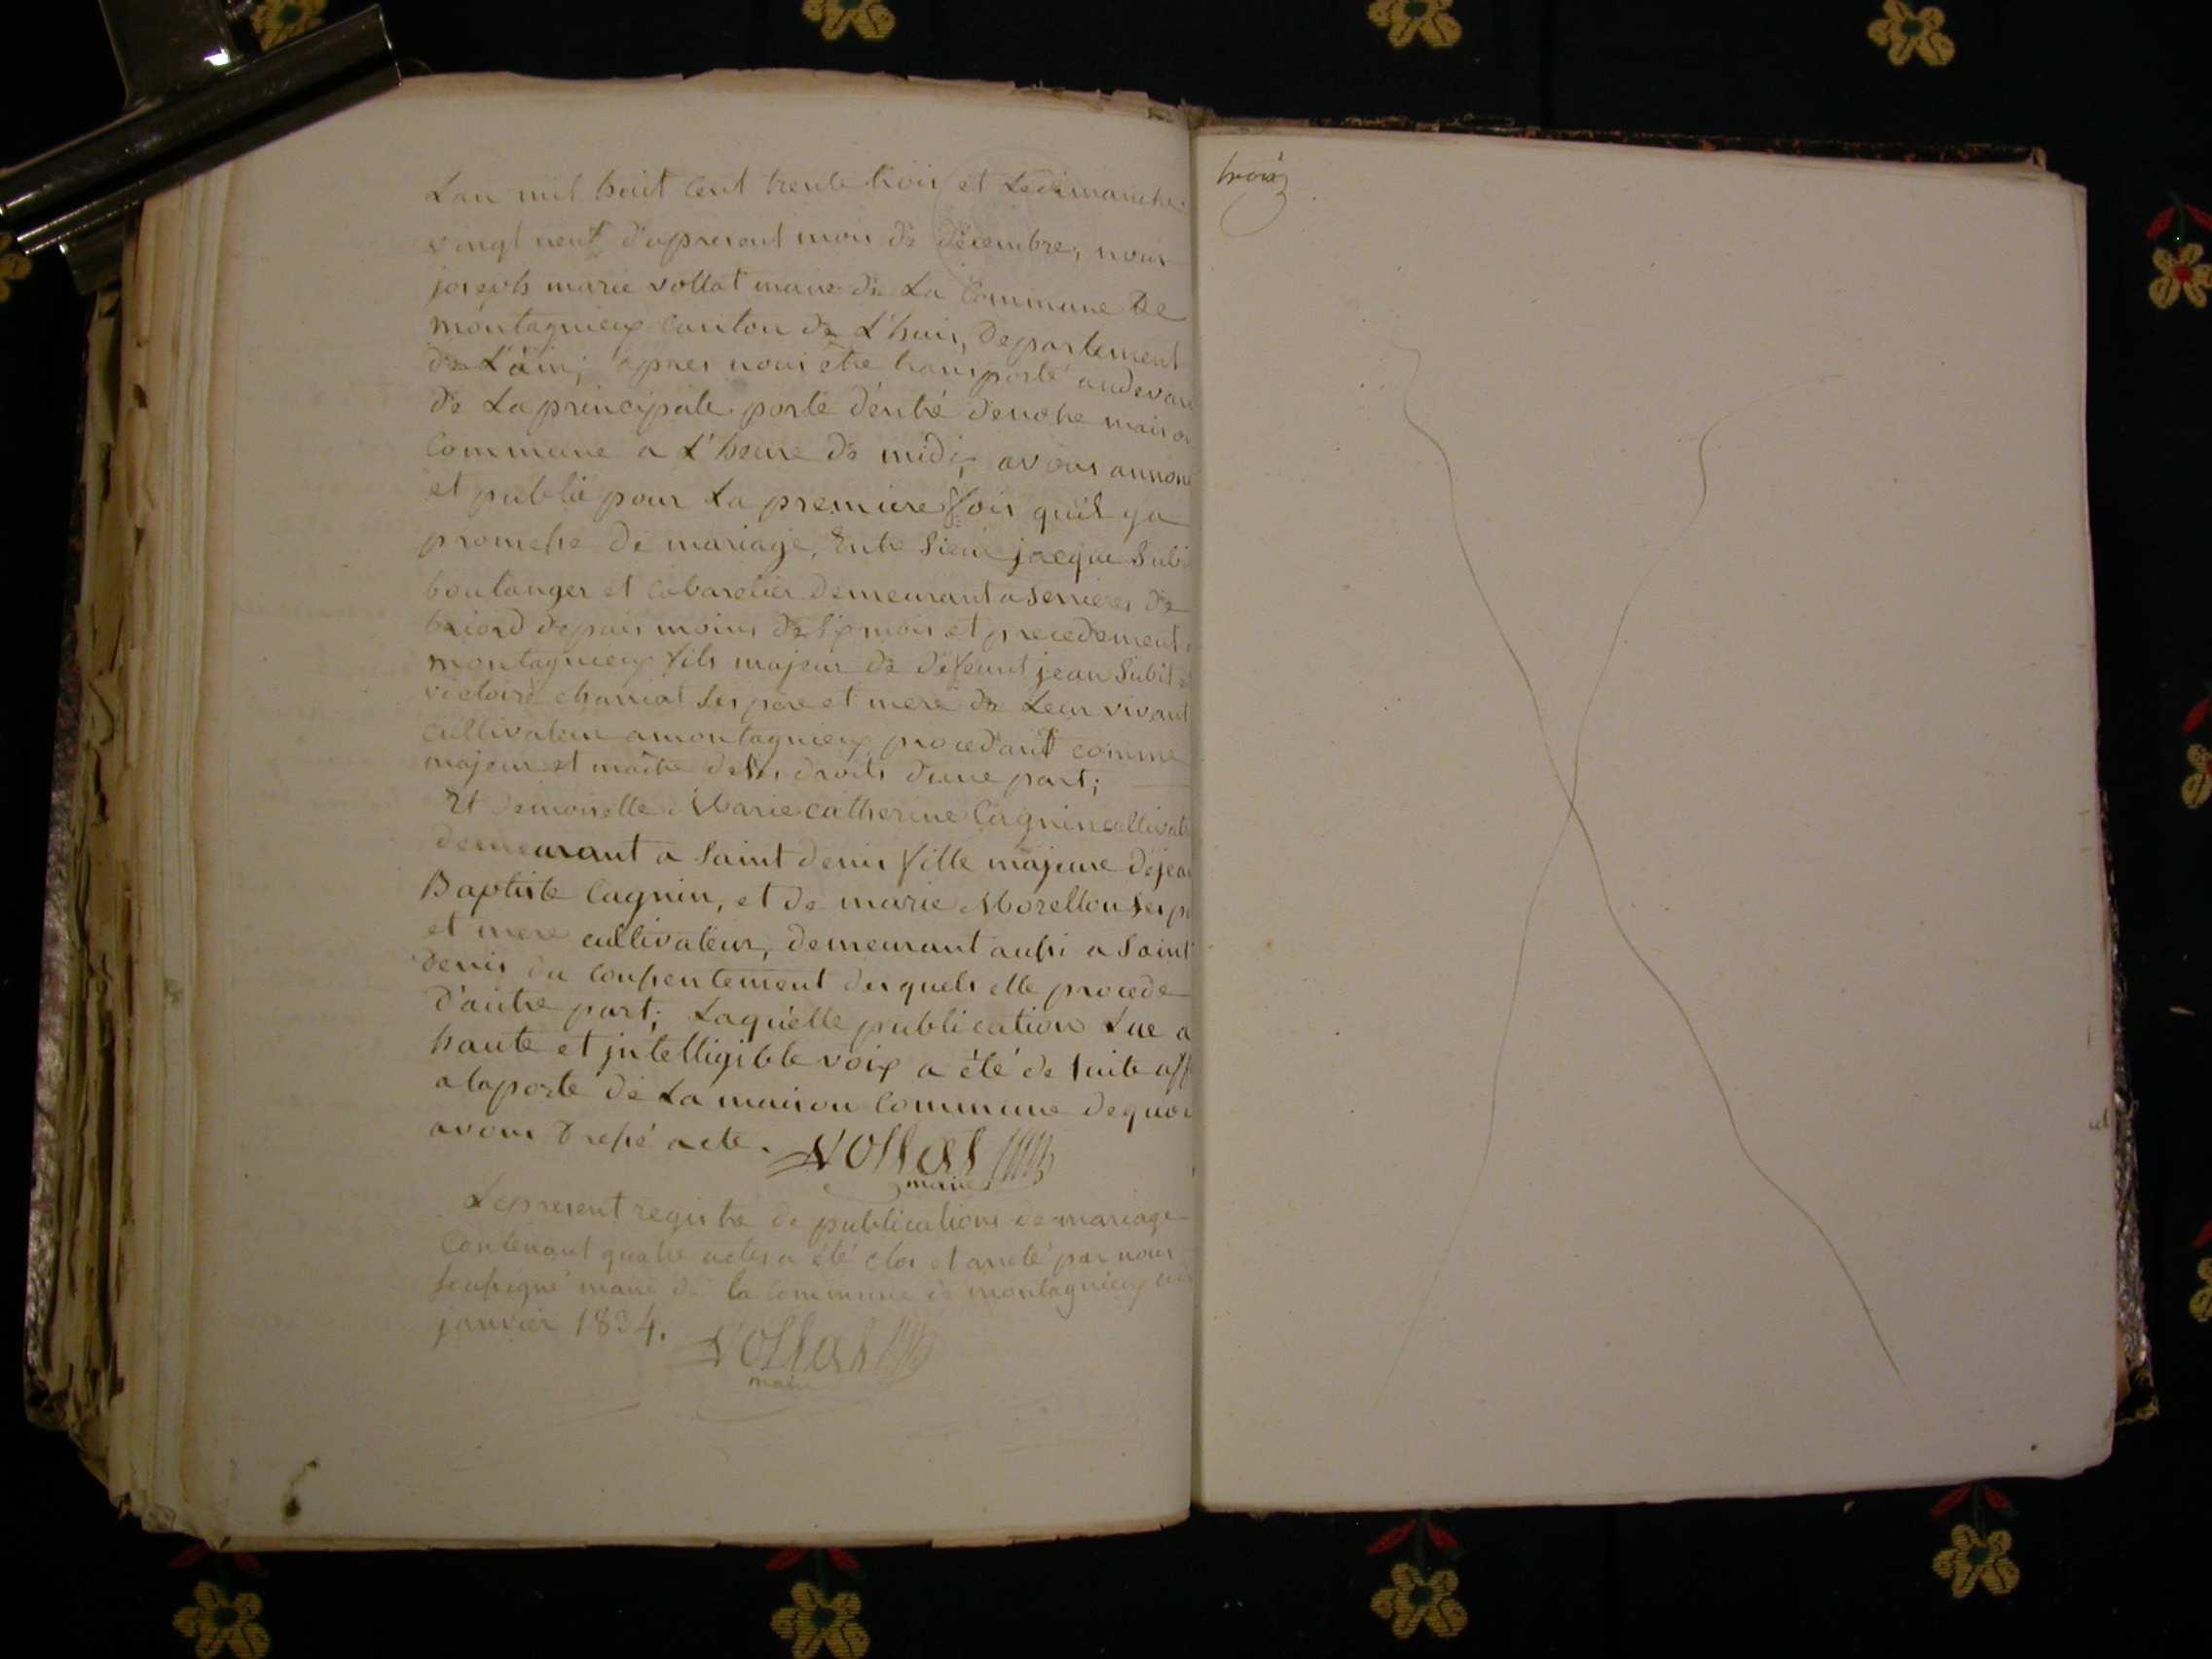 Lan mil huit cent trente trois et Le dimanche
vingt neuf d'apresent mois de décembre, nous
joseph marie vollat maire de La Commune de
montagnieux canton de L'huis, Departement
de L'ain; apres nous etre transporté audevan
de La principale porte d'entré denotre maiso
Commune a L'heure de midi, avons annonc
et publié pour La premiere fois quil ya
promesse de mariage, Entre Sieur jacque Subi
boulanger et Cabaretier demeurant a Serrieres de
briord depuis moins de six mois et precedement
montagnieux fils majeur de defeunt jean Subit
victoire charriat Ses pere et mere de Leur vivant
cultivateur amontagnieux procedant comme
majeur et maître de ses droits d'une part;
Et demoiselle Marie catherine Cagnin cultivat
demeurant a Saint denis fille majeure dejea
Baptiste Cagnin, et de marie Morellon ses p
et mere cultivateur, demeurant aussi a Saint
denis du Consentement desquels elle procede
d'autre part; Laquelle publication Lue a
haute et jntelligible voix a été de suite aff
alaporte de La maison Commune dequoi
avons Dressé acte. Vollat
maire
Lepresent registre de publications de mariage
Contenant quatre actes a été clos et arreté par nous
soussigné maire de la commune de montagnieux
janvier 1834. Vollat
maire
trois